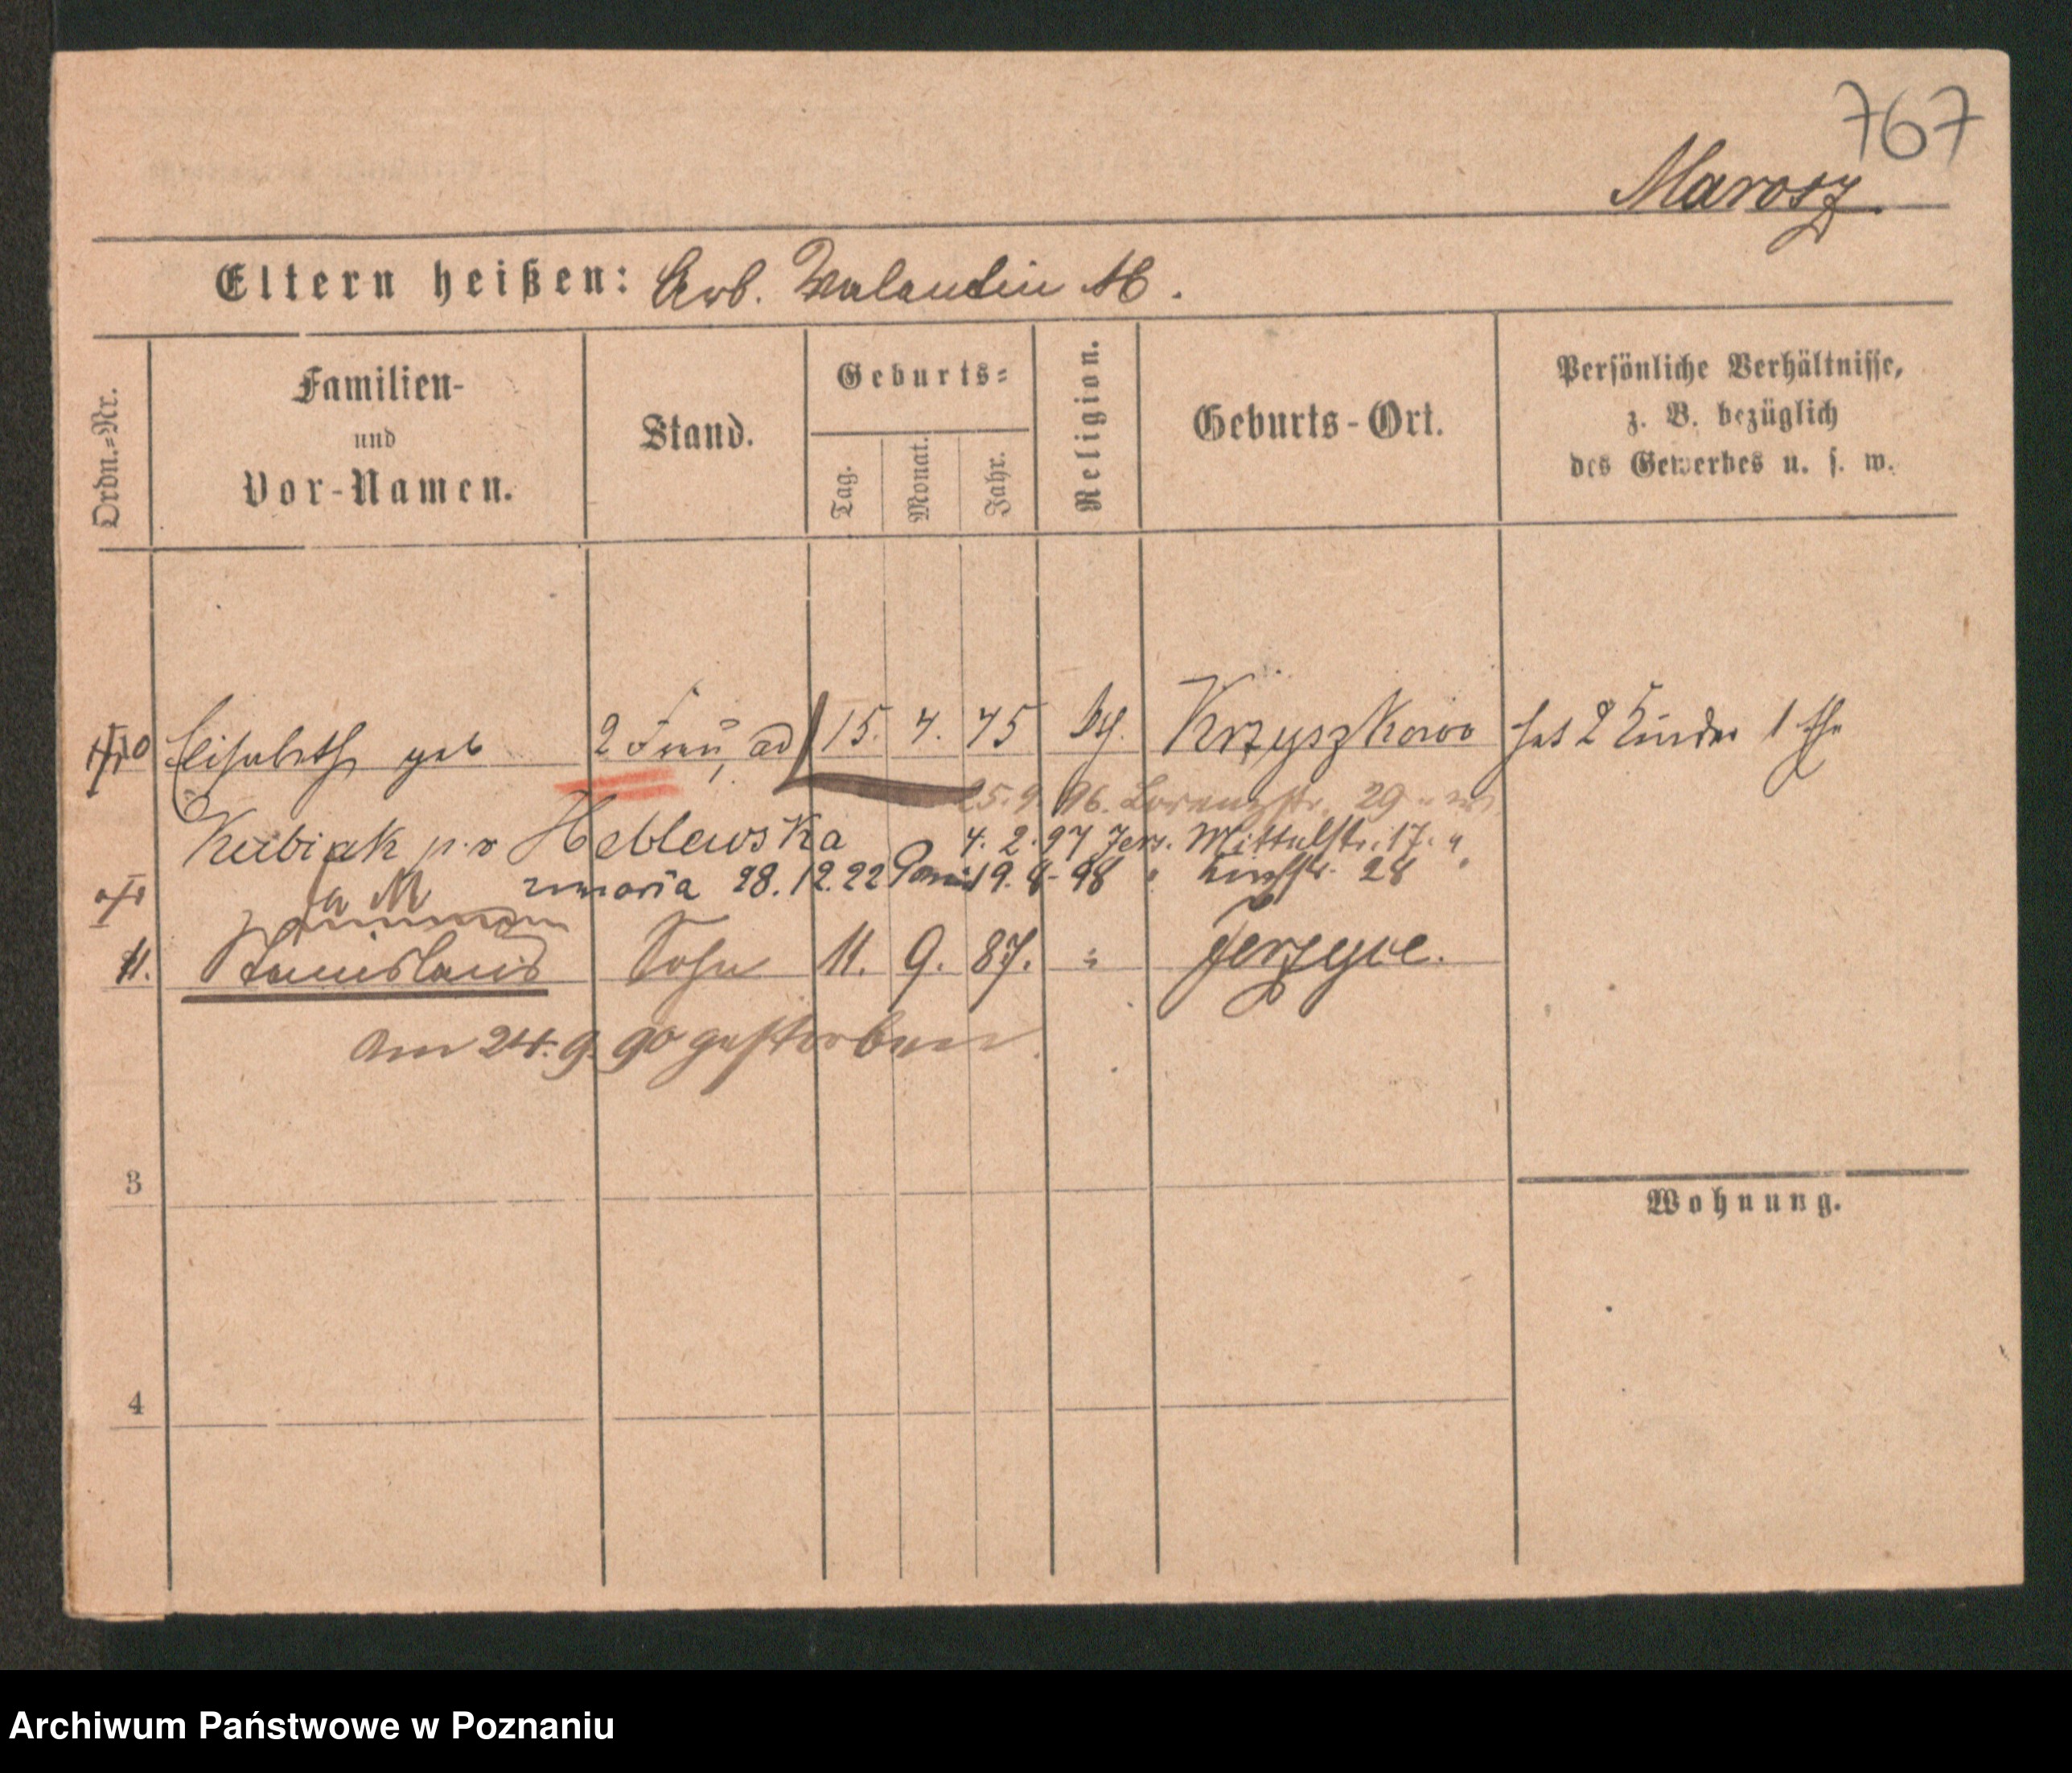 767
Marosz.
Eltern heißen: Arb. Valentin M.
Ordn.=Nr.
Familien-
und
Vor-Namen.
Stand.
Geburts=
Tag.
Monat.
Jahr.
Religion.
Geburts-Ort.
Persönliche Verhältnisse,
z. B. bezüglich
des Gewerbes u. s. w.
10 Elisabeth geb 2 Frau, 15. 4. 75 Krzyszkowo hat 2 Kinder 1
25. 9. 96. Lorenzstr. 29
Kubiak p. v Heblewska 4. 2. 97 Jers. Mittelstr. 17. "
a M zmarła 28.12.22 19. 8. 98 " 28 "
11. Stanislaus Sohn 11. 9. 87. " Jerzyce.
am 24. 9. 90 gestorben.
3
Wohnung.
4
Archiwum Państwowe w Poznaniu